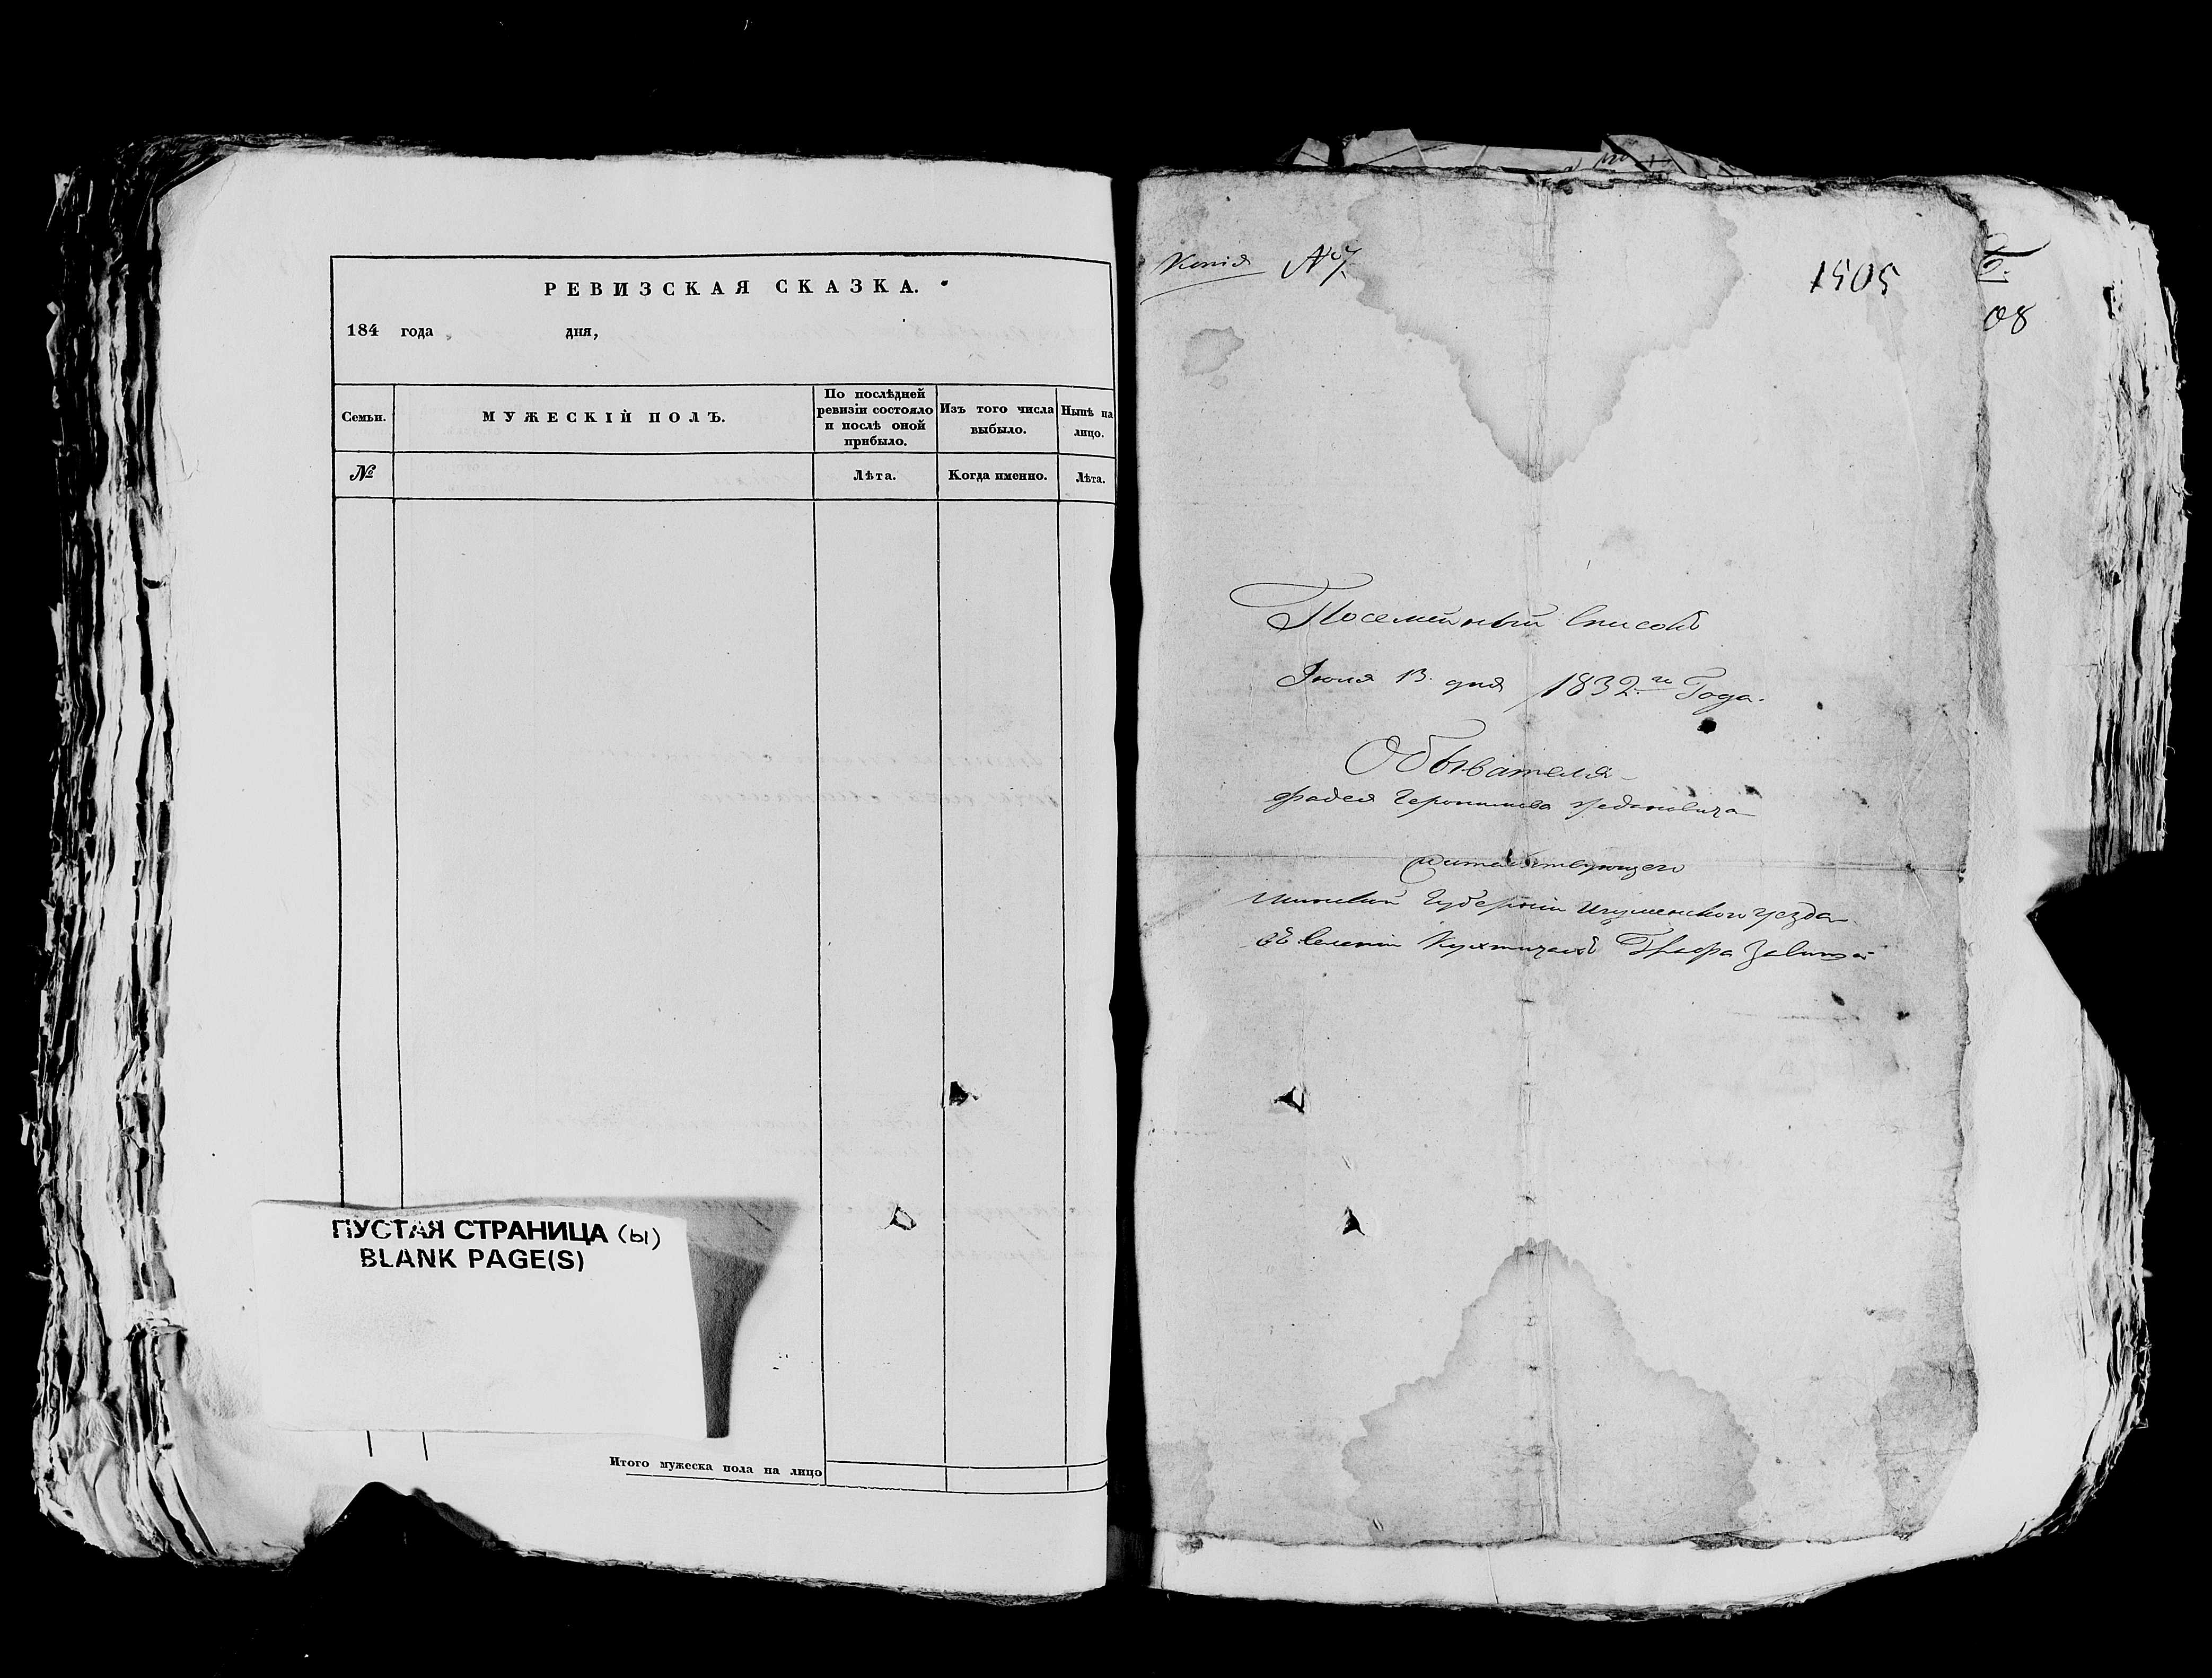 РЕВИЗСКАЯ СКАЗКА.
184 года дня,
Семьи.
МУЖЕСКІЙ ПОЛЪ.
По послѣдней
ревизіи состояло
и послѣ оной
прибыло.
Изъ того числа
выбыло.
Нынѣ на
лицо.
№
Лѣта.
Когда именно.
Лѣта.
ПУСТАЯ СТРАНИЦА (ы)
BLANK PAGE(S)
Итого мужеска пола на лицо
Копія №7
1505
08
Посемейный Списокъ
Іюля 13 дня 1832 го Года.
Обывателя
Фадея Геронимова
жительствующего
Минской Губерніи Игуменского уезда
въ Селеніи Кухтичахъ Графа Завиши